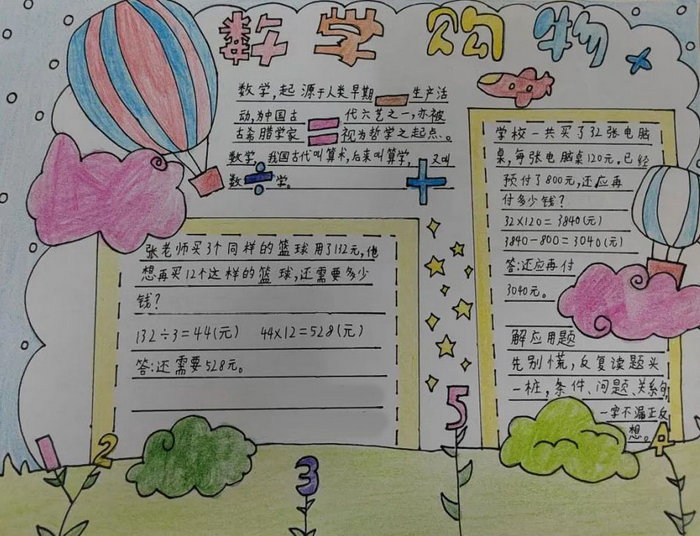 数学购物
数学，起源于人类早期生产活
动，为中国古代六艺之一，亦被
古希腊学家视为哲学之起点。
数学我国古代叫算术，后来叫算学，又叫
数学。
张老师买3个同样的篮球用了132元，他
想再买12个这样的篮球，还需要多少
钱？
132÷3=44(元) 44×12=528(元)
答:还需要528元。
学校一共买了32张电脑
桌，每张电脑桌120元，已经
预付了800元，还应再
付多少钱？
32×120=3840(元)
3840-800=3040(元)
答:还应再付
3040元。
解应用题
先别慌，反复读题头
一桩，条件、问题、关系句，
一字不漏正反
想。
1
2
3
5
4